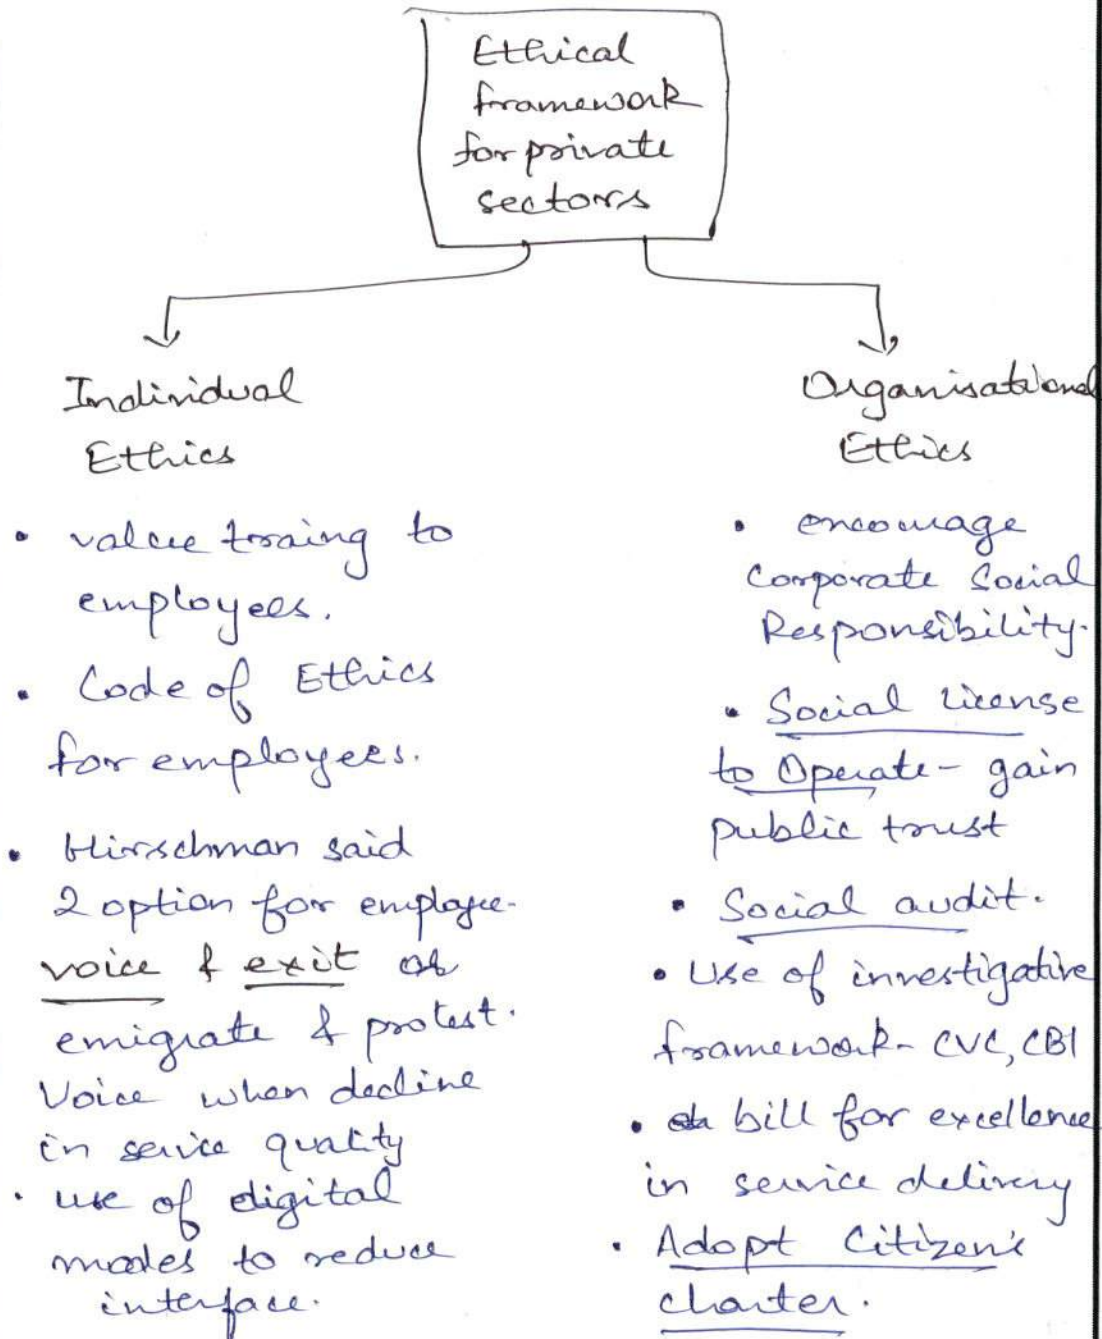 Ethical
framework
for private
sectors
Individual
Ethics
• value traing to
employees.
• Code of Ethics
for employees.
• Hirschman said
2 option for employee-
voice & exit or
emigrate & protest.
Voice when decline
in service quality
• use of digital
modes to reduce
interface.
Organisational
Ethics
• encourage
Corporate Social
Responsibility.
• Social License
to Operate - gain
public trust
• Social audit.
• Use of investigative
framework - CVC, CBI
• bill for excellence
in service delivery
• Adopt Citizen's
charter.